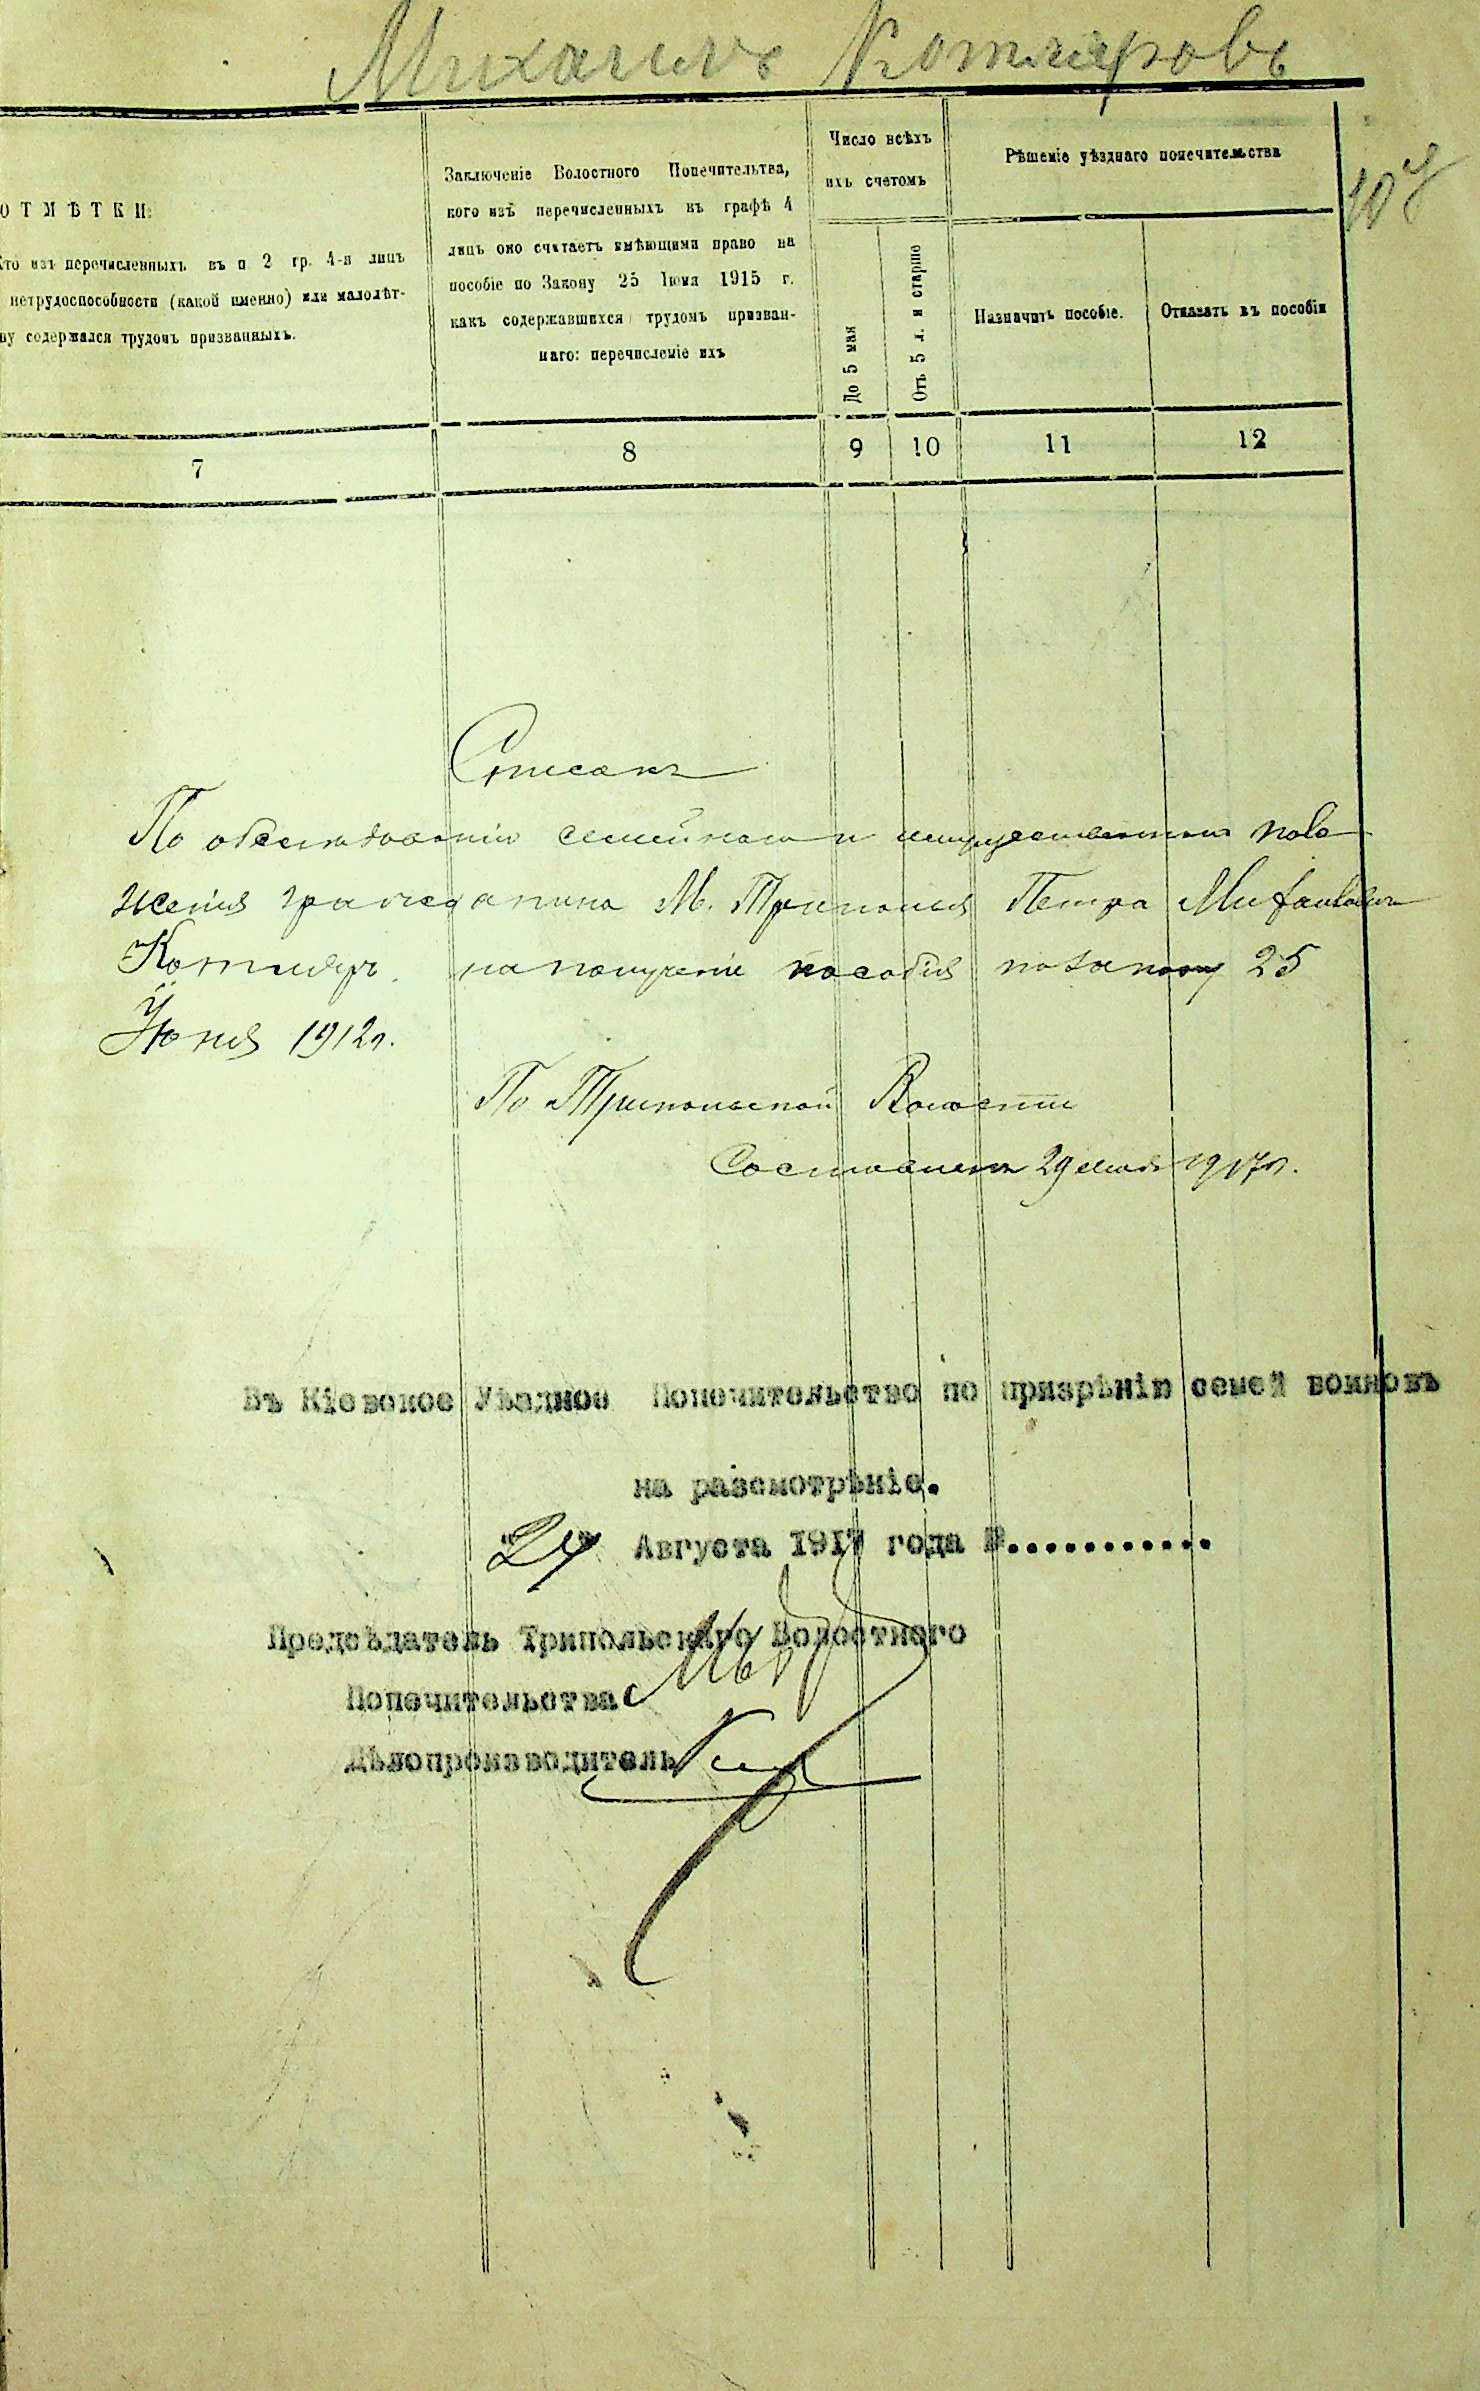 Михаилъ Котляровъ
107
ОТМѢТКИ:
Кто изъ перечисленныхъ въ п 2 гр. 4-я лицъ
нетрудоспособности (какой именно) или малолѣт-
ву содержался трудомъ призванныхъ.
Заключеніе Волостного Попечительтва,
кого изъ перечисленныхъ въ графѣ 4
лицъ оно считаетъ имѣющими право на
пособіе по Закону 25 Іюня 1915 г.
какъ содержавшихся трудомъ призван-
наго: перечисленіе ихъ
Число всѣхъ
ихъ счетомъ
До 5 мая
Отъ 5 л. и старше
Рѣшеніе уѣзднаго попечительства
Назначить пособіе.
Отказать въ пособіи
7 8 9 10 11 12
Списокъ
По обслѣдованію семейнаго и имущественнаго поло
женія гражданина М. Триполья Петра Михайлович
Котляръ на полученіе пособія по закону 25
Іюня 1912г.
По Трипольской Волости
Составленъ 29 1917г.
Въ Кіевское Уѣздное Попечительство по призрѣнію семей воиновъ
на разсмотрѣніе.
"24" Августа 1917 года №...........
Предсѣдатель Трипольскаго Волостного
Попечительства
Дѣлопроизводитель